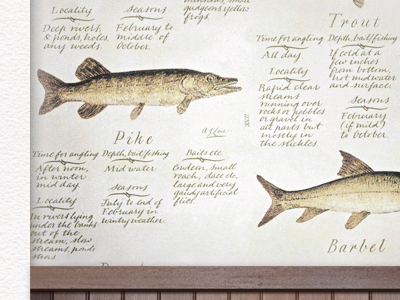 Locality
Deep rivers,
& ponds, holes,
any weeds.
Seasons
February to
middle of
October.
gudgeons yellow
frogs.
Trout
Time for angling
All day.
Locality
Rapid clear
streams
running over
rocks or pebbles
or gravel in
all parts but
mostly in
the stickles.
Depth, bait fishing
If cold at a
few inches
from bottom,
hot midwater
and surface.
Seasons
February
(if mild)
to October.
Pike
Time for angling
After noon,
in winter
mid day.
Locality
In rivers lying
under the banks
out of the
stream, slow
streams, ponds
Depth, bait fishing
Mid water
Seasons
July to end of
February in
wintry weather.
Baits etc.
Gudgeon, small
roach, dace etc.
large and very
gaudy artificial
flies.
Barbel